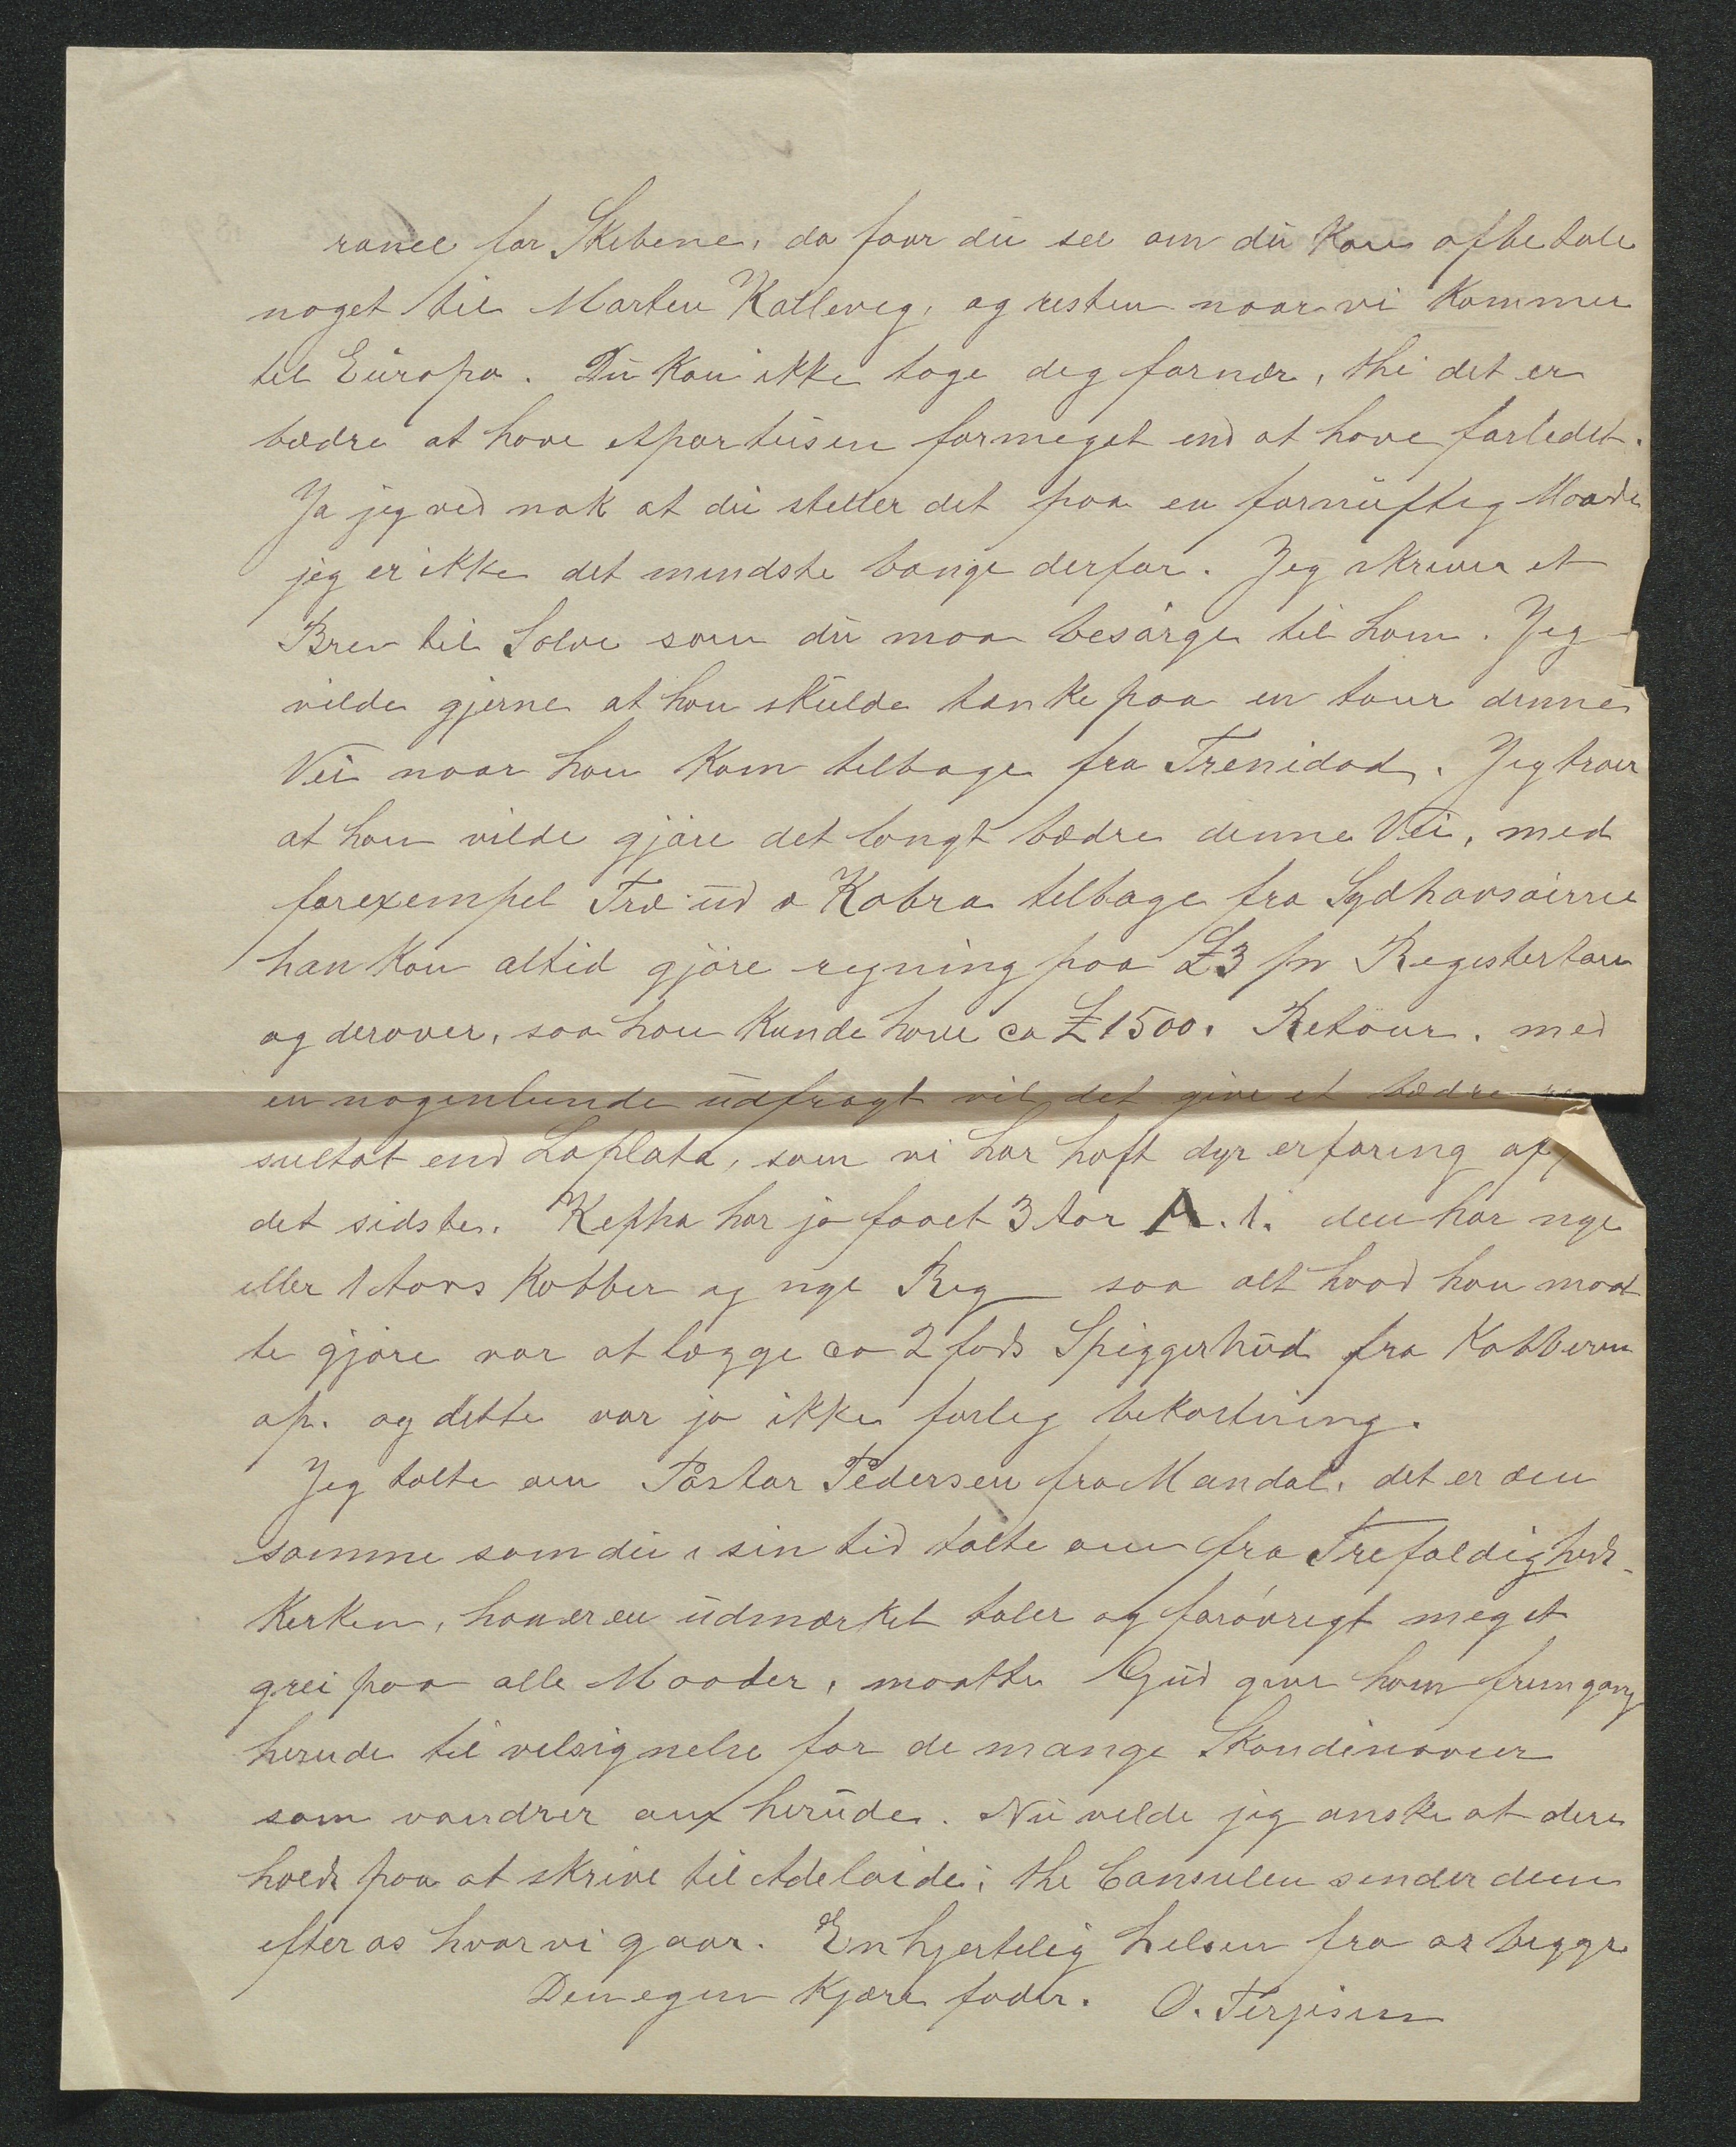 rance for Skibene, da faar du see om du kan afbetale
noget til Marten Kalleveg, og resten naar vi kommer
til Europa. Du kan ikke tage deg fornær, thi det er
bædre at have Aparteisen formeget end at have forledet.
Ja jeg ved nok at du steller det paa en fornuftig Maade
jeg er ikke det mindste bange derfor. Jeg skriver et
Brev til Solve som du maa besørge til ham. Jeg
vilde gjerne at han skulde tænke paa en tour denne
Vei naar han kom tilbage fra Trenidad. Jeg troer
at han vilde gjøre det langt bædre denne Vei, med
forexempel Træ ud o Kobra tilbage fra Sydhavsøerne
han kan altid gjøre regning paa £3 pr Registerton
og derover, saa han kunde have ca £1500. Retour. med
en nogenlunde udfragt vil det give et bædre re
sultat end Laplata, som vi har haft dyr erfaring af
det sidste. Keppa har jo faaet 3 Aar A.1. den har nye
eller 1 Aars Kobber og nye Rig saa alt hvad han maat
te gjøre var at lægge ca 2 fods Spiggerhud fra Kobberen
op. og dette var jo ikke farlig bekostning.
Jeg talte om Pastor Pedersen fra Mandal, det er den
samme som du i sin tid talte om fra Trefoldigheds-
Kerken, han er en udmærket taler og forøvrigt meget
grei paa alle Maader, maatte Gud give ham fremgang
herude til velsignelse for de mange Skandinaver
som vandrer om herude. Nu vilde jeg ønske at dere
holdt paa at skrive til Adelaide; thi Consulen sender dem
efter os hvor vi gaar. En hjertelig hilsen fra os begge
Den egen kjære fader. O. Terjesen